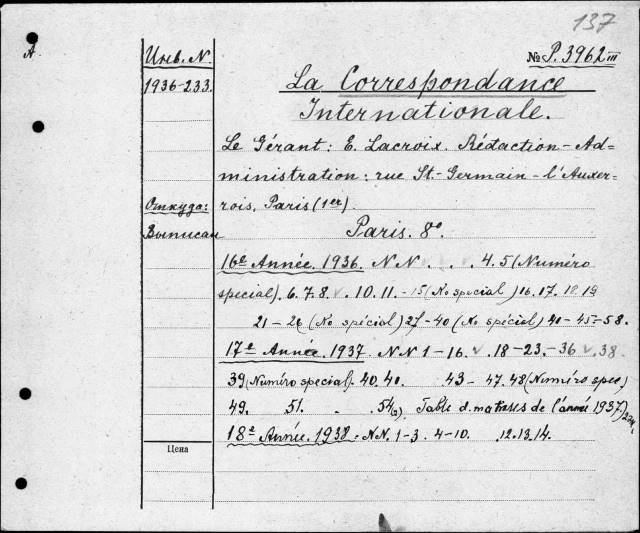 137
A
Инв. N.
1936-233.
№ P. 3962 III
La Correspondance
Internationale.
Le Gérant: E. Lacroix. Rédaction-Ad=
ministration: rue St.-Germain-l'Auxer-
rois, Paris (1er)
Откуда:
Выписан
Paris. 8°.
16e Année. 1936. NN . . . 4. 5 (Numéro
special). 6. 7. 8. v. 10. 11. -15 (No special) 16. 17. 18. 19
21 - 26 (No spécial) 27-40 (No spécial) 40-45-58.
17e Année. 1937. NN 1-16. v. 18-23.-36 v. 38.
39 (Numéro special). 40. 40. 43 - 47. 48 (Numéro spec)
49. 51. . 54(2). Table d. matières de l'année 1937)
18e Année. 1938. NN. 1-3. 4-10. 12. 13. 14.
Цена